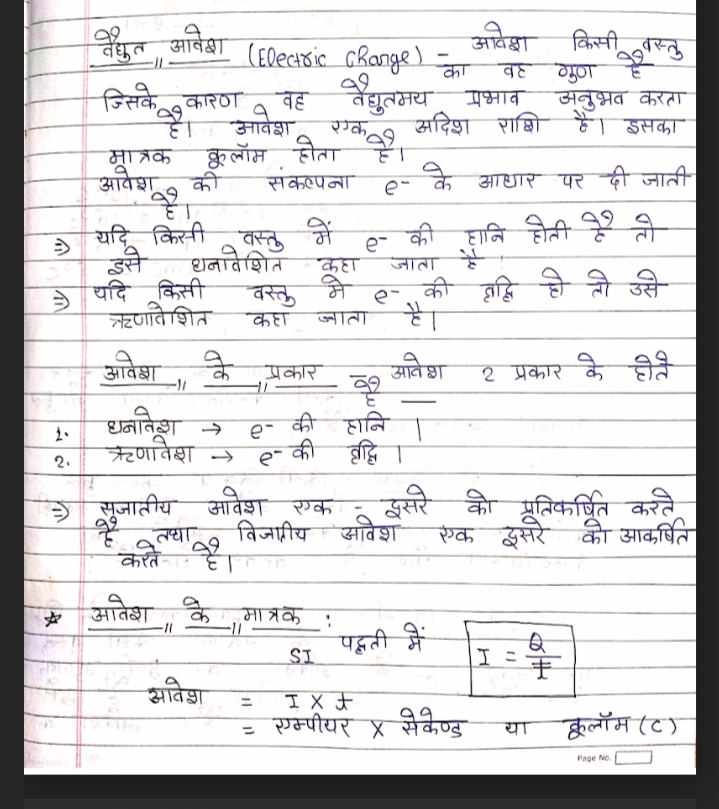 वैद्युत आवेश (Electric Charge) - आवेश किसी वस्तु
का वह गुण है
जिसके कारण वह वैद्युतमय प्रभाव अनुभव करता
है। आवेश एक अदिश राशि है। इसका
मात्रक कूलॉम होता है।
आवेश की संकल्पना e- के आधार पर दी जाती
है।
⇒ यदि किसी वस्तु में e- की हानि होती है तो
इसे धनावेशित कहा जाता है।
⇒ यदि किसी वस्तु मे e- की वृद्धि हो तो उसे
ऋणावेशित कहा जाता है।
आवेश के प्रकार - आवेश 2 प्रकार के होते
है —
1. धनावेश → e- की हानि ।
2. ऋणावेश → e- की वृद्धि ।
⇒ सजातीय आवेश एक - दूसरे को प्रतिकर्षित करते
है तथा विजातीय आवेश एक दूसरे को आकर्षित
करते है।
* आवेश के मात्रक :
SI पद्धती में I = Q/t
आवेश = I X t
= एम्पीयर X सेकेण्ड या कूलॉम (C)
Page No.